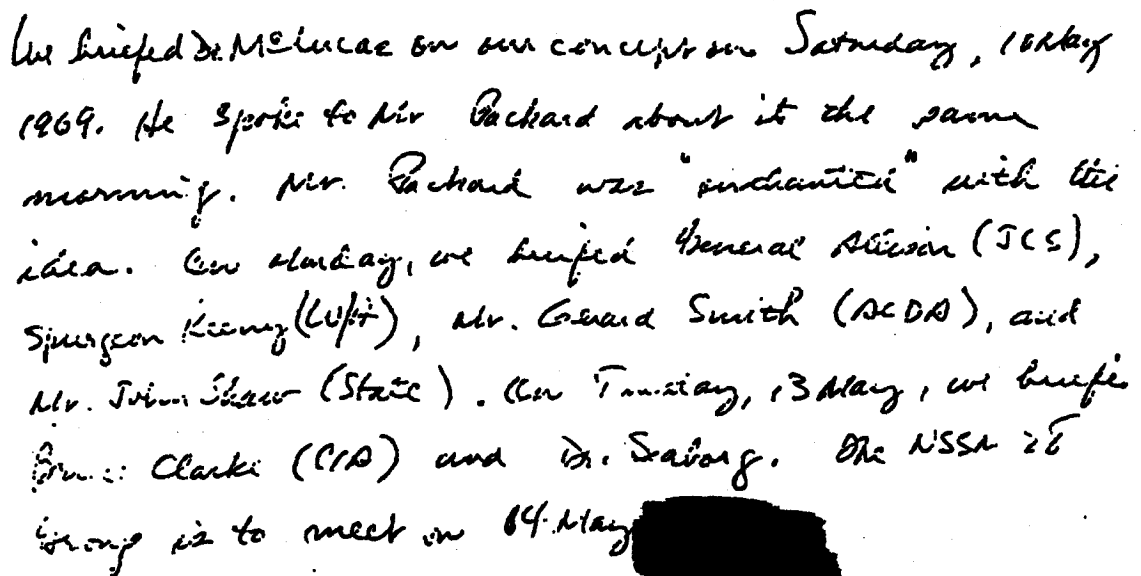 We briefed Dr. McLucas on our concept on Saturday, 10 May
1969. He spoke to Mr Packard about it the same
morning. Mr. Packard was "enchanted" with the
idea. On Monday, we briefed General Allison (JCS),
Spurgeon Keeny (), Mr. Gerard Smith (ACDA), and
Mr. John Shaw (State). On Tuesday, 13 May, we briefed
Bruce Clarke (CIA) and Dr. Seaborg. The NSSM 28
group is to meet on 14 May